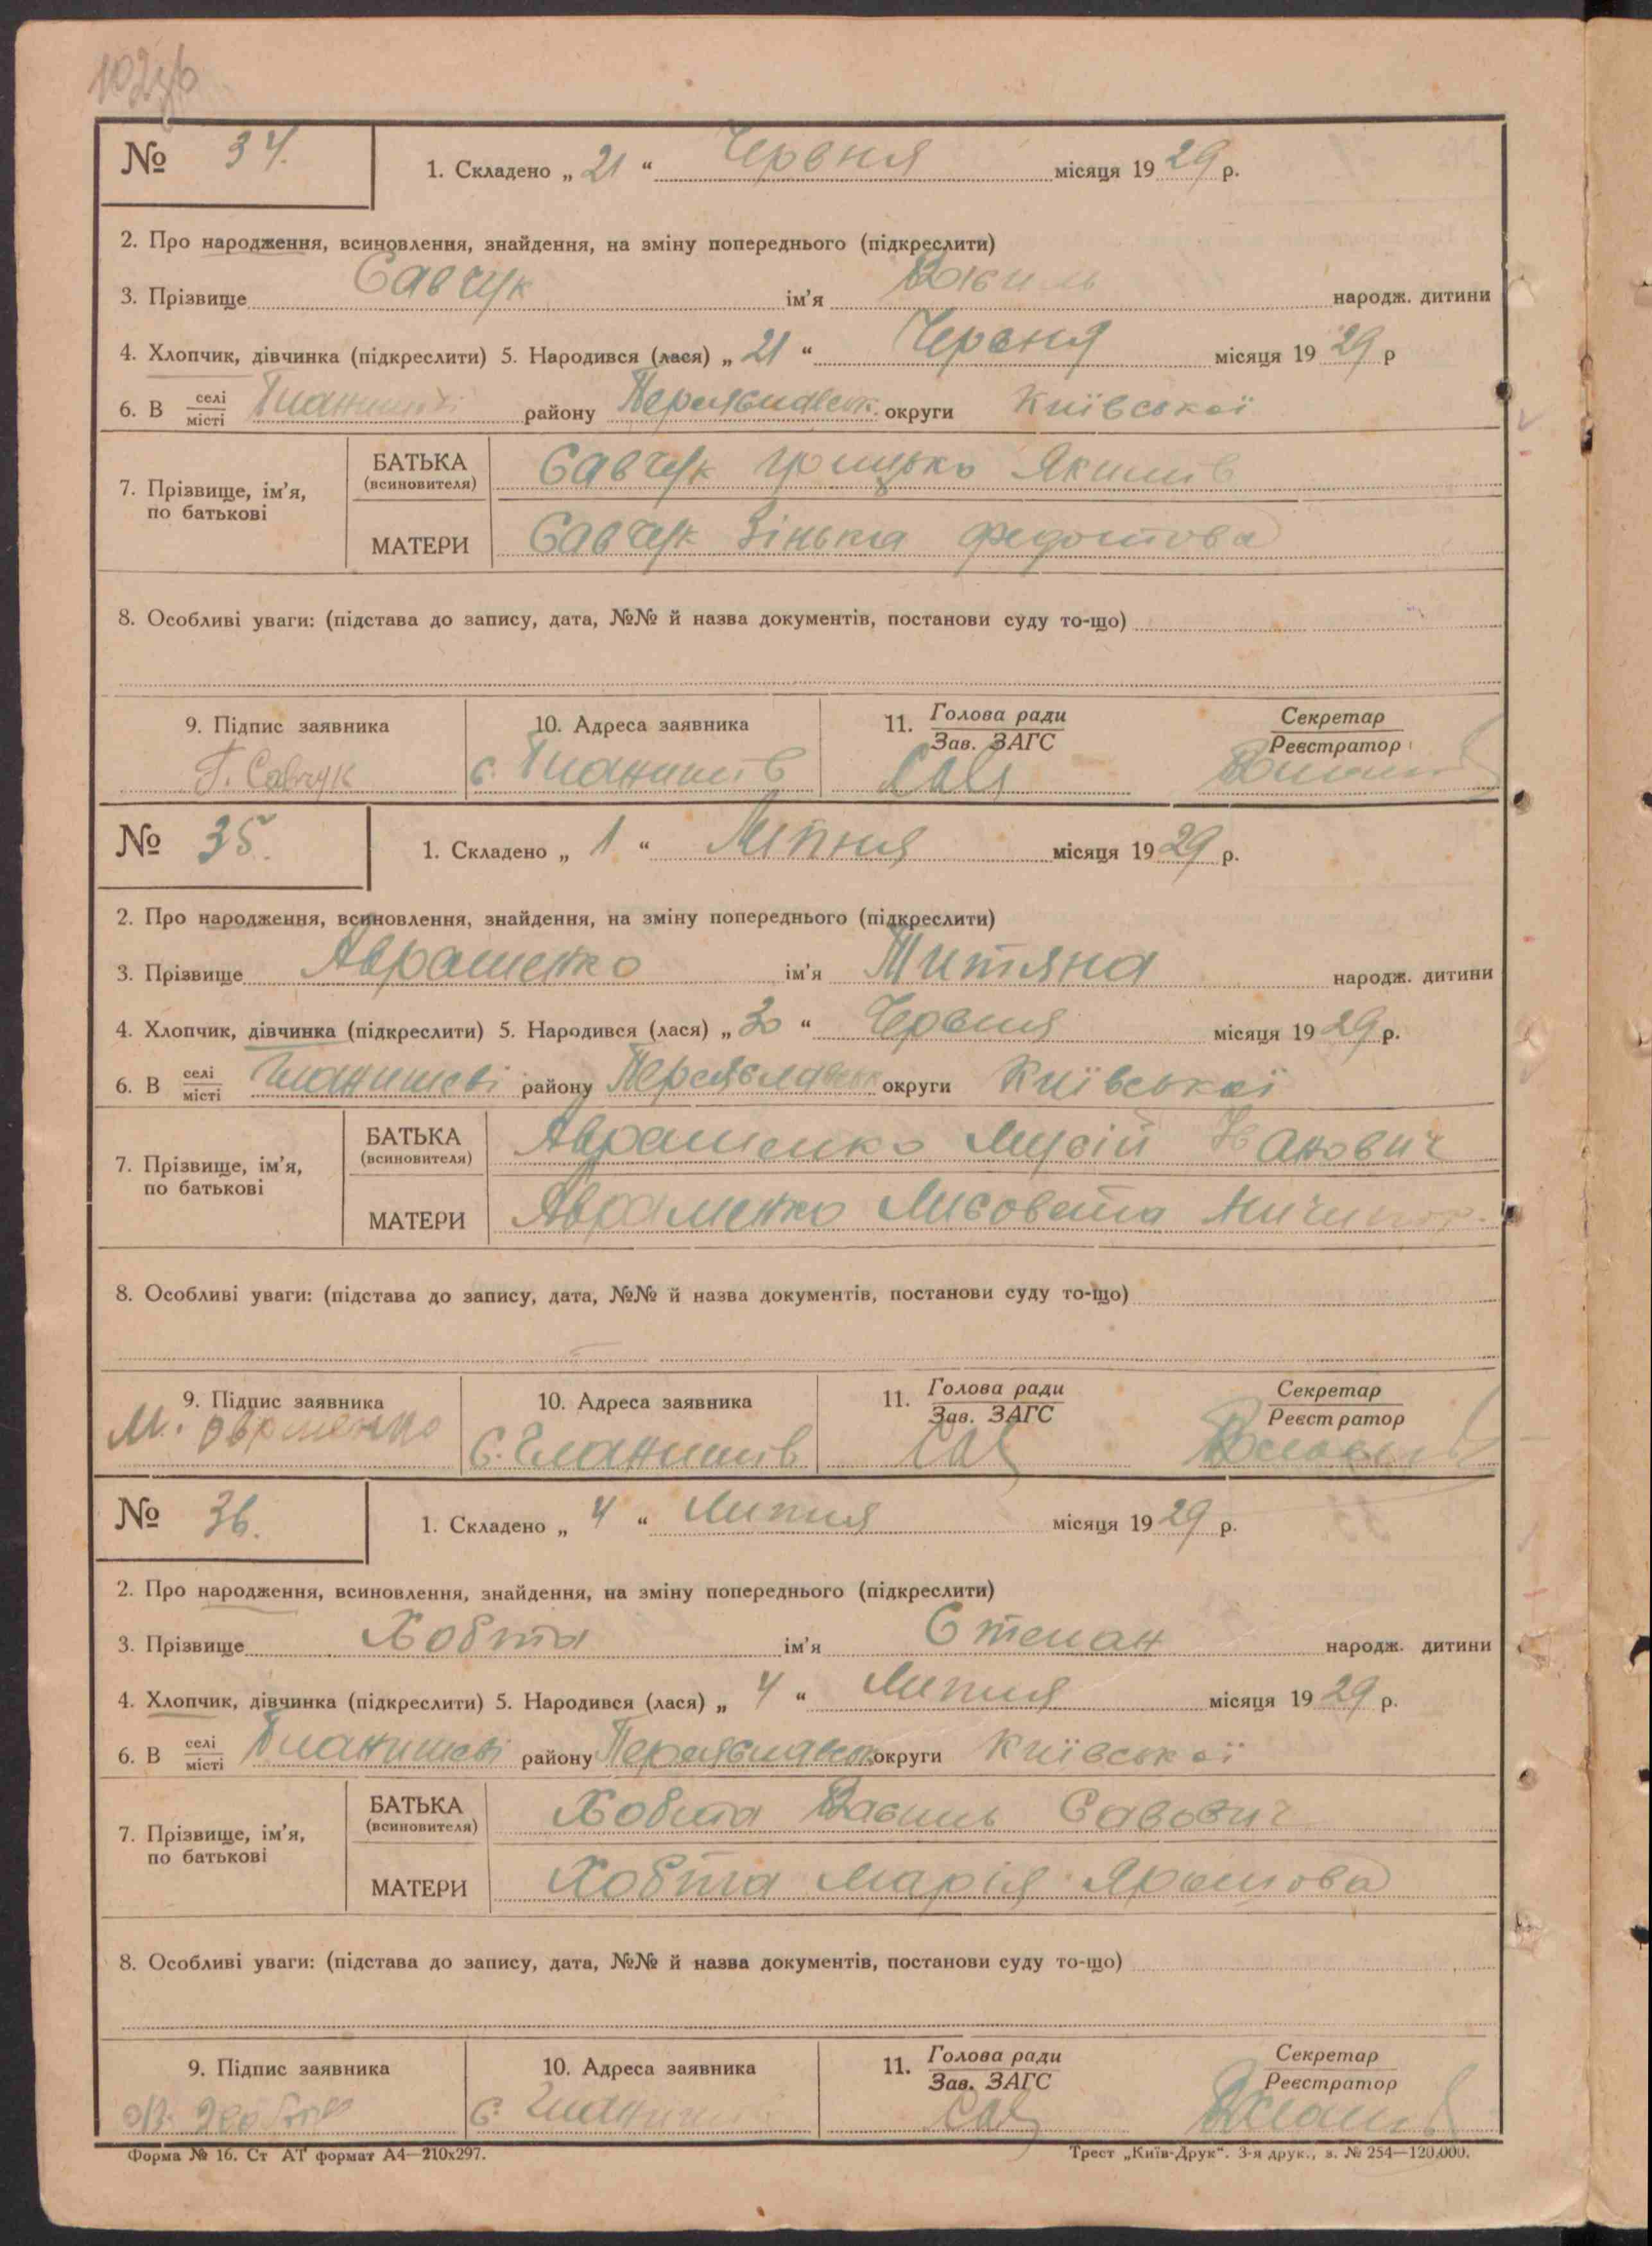 № 34.
1. Складено „ 21 “ Червня місяця 1929 р.
2. Про народження, всиновлення, знайдення, на зміну попереднього (підкреслити)
3. Прізвище Савчук ім'я Василь народж. дитини
4. Хлопчик, дівчинка (підкреслити) 5. Народився (лася) „ 21 “ Червня місяця 1929 р
6. В селі/місті району Переяславськ. округи Київської
7. Прізвище, ім'я, по батькові
БАТЬКА (всиновителя) Савчук Грицько Якимів
МАТЕРИ Савчук Зінька Федотова
8. Особливі уваги: (підстава до запису, дата, №№ й назва документів, постанови суду то-що)
9. Підпис заявника 10. Адреса заявника 11. Голова ради/Зав. ЗАГС Секретар/Реєстратор
Г. Савчук с.
№ 35.
1. Складено „ 1 “ Липня місяця 1929 р.
2. Про народження, всиновлення, знайдення, на зміну попереднього (підкреслити)
3. Прізвище Авраменко ім'я Титяна народж. дитини
4. Хлопчик, дівчинка (підкреслити) 5. Народився (лася) „ 30 “ Червня місяця 1929 р.
6. В селі/місті району Переяславськ округи Київської
7. Прізвище, ім'я, по батькові
БАТЬКА (всиновителя) Авраменко Мусій Іванович
МАТЕРИ Авраменко Лисовета
8. Особливі уваги: (підстава до запису, дата, №№ й назва документів, постанови суду то-що)
9. Підпис заявника 10. Адреса заявника 11. Голова ради/Зав. ЗАГС Секретар/Реєстратор
М. Овраменко с.
№ 36.
1. Складено „ 4 “ Липня місяця 1929 р.
2. Про народження, всиновлення, знайдення, на зміну попереднього (підкреслити)
3. Прізвище Хобта ім'я Степан народж. дитини
4. Хлопчик, дівчинка (підкреслити) 5. Народився (лася) „ 4 “ Липня місяця 1929 р.
6. В селі/місті району Переяславськ. округи Київської
7. Прізвище, ім'я, по батькові
БАТЬКА (всиновителя) Хобта Василь Савович
МАТЕРИ Хобта Марія
8. Особливі уваги: (підстава до запису, дата, №№ й назва документів, постанови суду то-що)
9. Підпис заявника 10. Адреса заявника 11. Голова ради/Зав. ЗАГС Секретар/Реєстратор
В. Хобта с.
Форма № 16. Ст АТ формат А4—210х297. Трест „Київ-Друк“. 3-я друк., з. № 254—120.000.